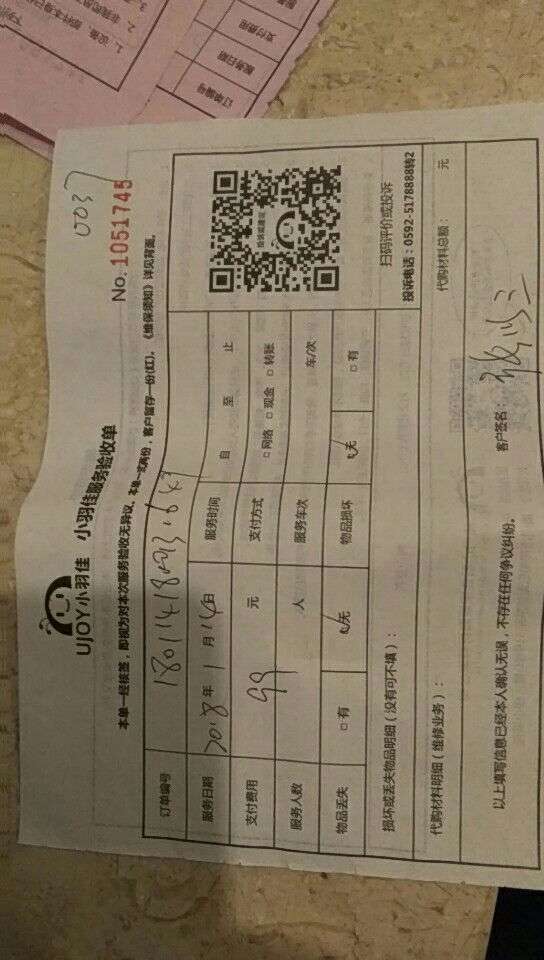 UJOY小羽佳 小羽佳服务验收单
0037
No. 1051745
本单一经核签，即视为对本次服务验收无异议。本单一式两份，客户留存一份(红)。《维保须知》详见背面。
订单编号
服务日期 2018年 1 月 14日 服务时间 自 至 止
支付费用 99 元 支付方式 □网络 □现金 □转账
服务人数 人 服务车次 车/次
物品丢失 □有 □无 物品损坏 □无 □有
扫码评价或投诉
投诉电话：0592-5178888转2
损坏或丢失物品明细（没有可不填）：
代购材料明细（维修业务）： 代购材料总额： 元
以上填写信息已经本人确认无误，不存在任何争议纠纷。 客户签名：
订单编号
服务日期
支付费用